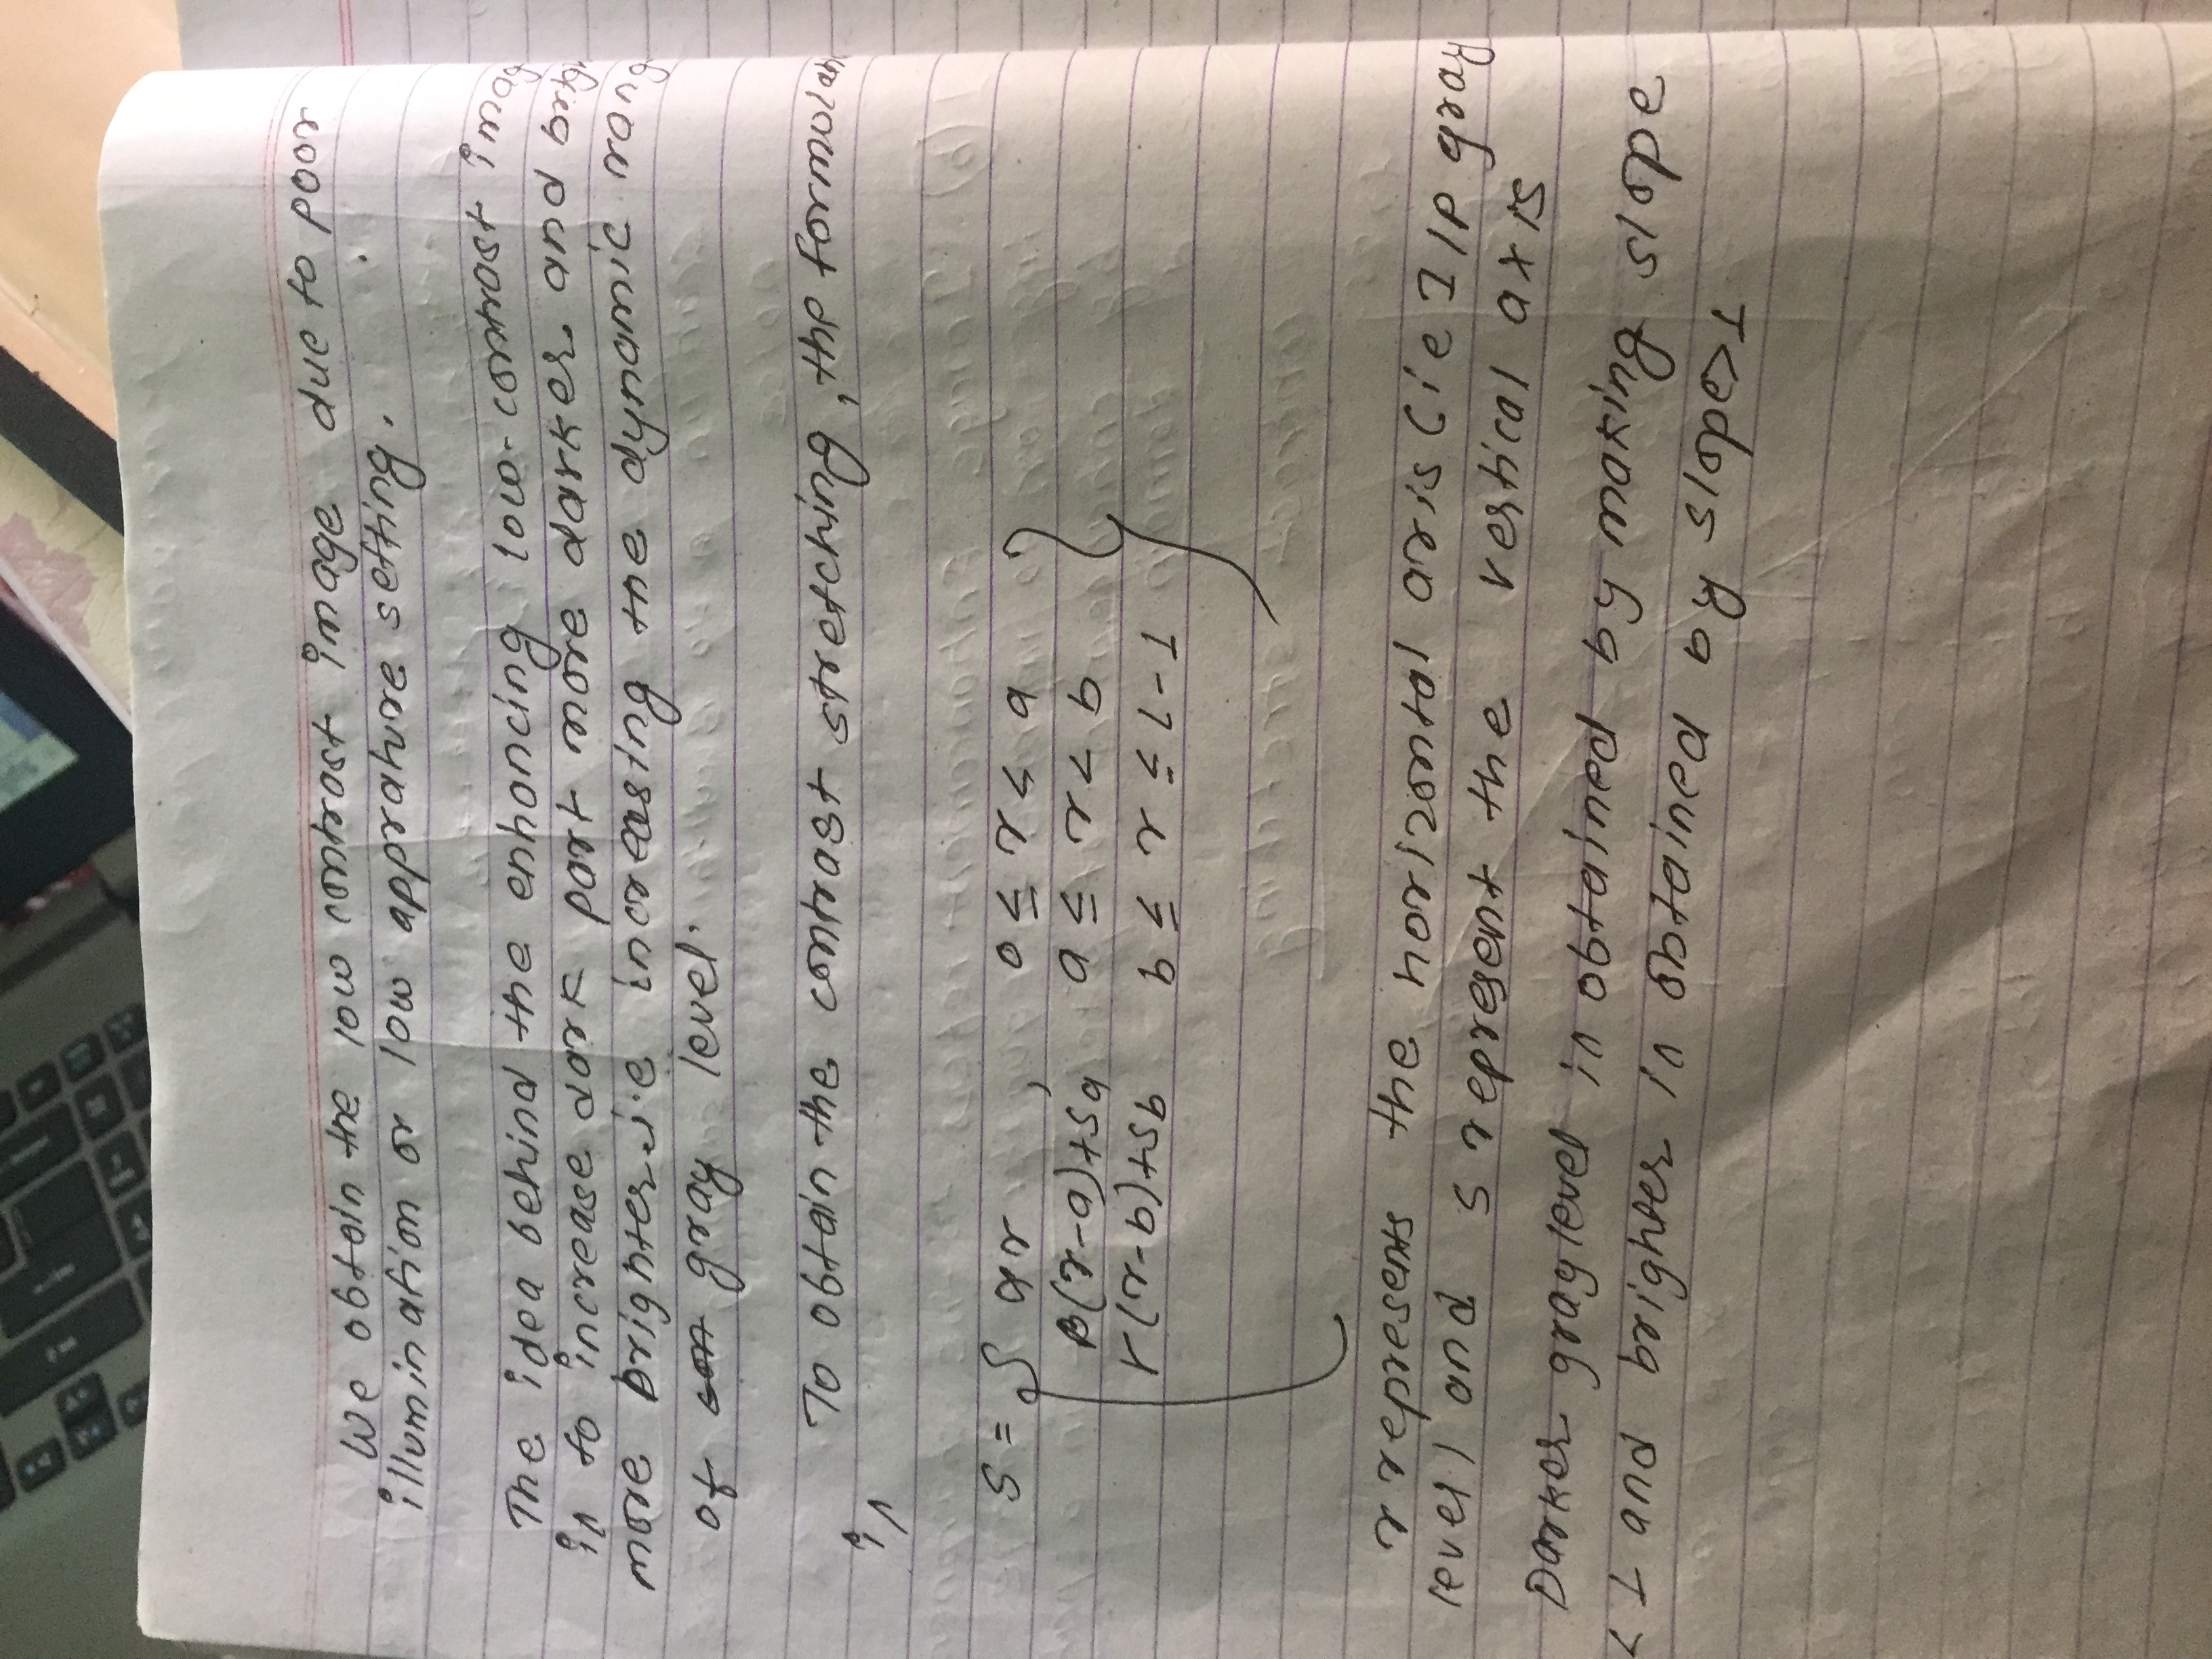 We obtain the low contrast image due to poor
illumination or low apprature setting.
The idea behind the enhancing low-contrast imag
is to increase dark part more darker and brig
more brighter i.e increasing the dynamic rang
of gray level.
To obtain the contrast stretching, the formulah
is
S = { αr , 0 ≤ r < a }
β(r-a)+Sa a ≤ r < b
r(r-b)+Sb b ≤ r ≤ L-1
r represents the horizontal axis (ie I/p gray
level) and S represent the vertical axis
Darker gray level is obtained by making slope
< 1 and brighter is obtained by slope>1